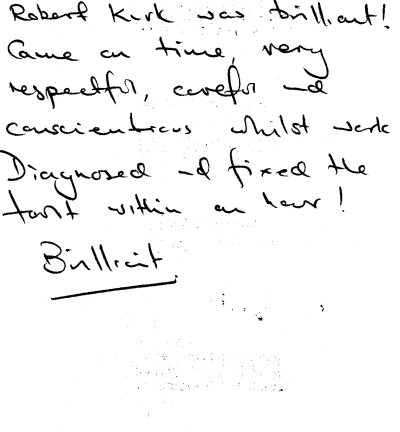 Robert Kirk was brilliant!
Came on time, very
respectful, careful and
conscientious whilst work
Diagnosed and fixed the
fault within an hour!
Brilliant